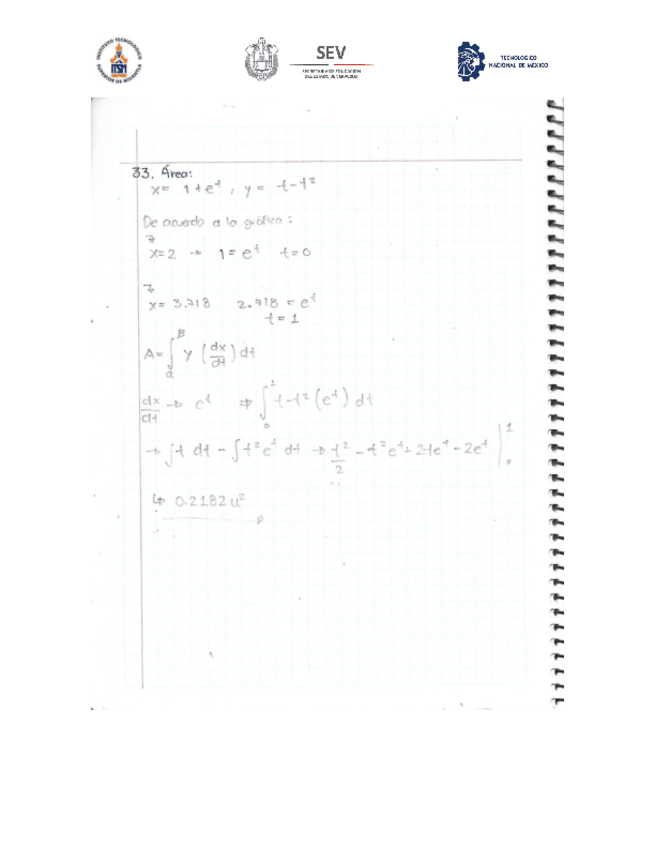 INSTITUTO TECNOLOGICO SUPERIOR DE MISANTLA
SEV
SECRETARÍA DE EDUCACIÓN
DEL ESTADO DE VERACRUZ
TECNOLOGICO
NACIONAL DE MÉXICO
33. Área:
x= 1+e^t , y= t-t²
De acuerdo a la gráfica:
x=2 → 1=e^t t=0
x= 3.718 2.718=e^t
t=1
A=∫ y (dx/dt) dt
dx/dt → e^t ⇒ ∫₀¹ t-t²(e^t) dt
→ ∫t dt - ∫t²e^t dt → t²/2 - t²e^t + 2te^t - 2e^t |₀¹
↳ 0.2182 u²